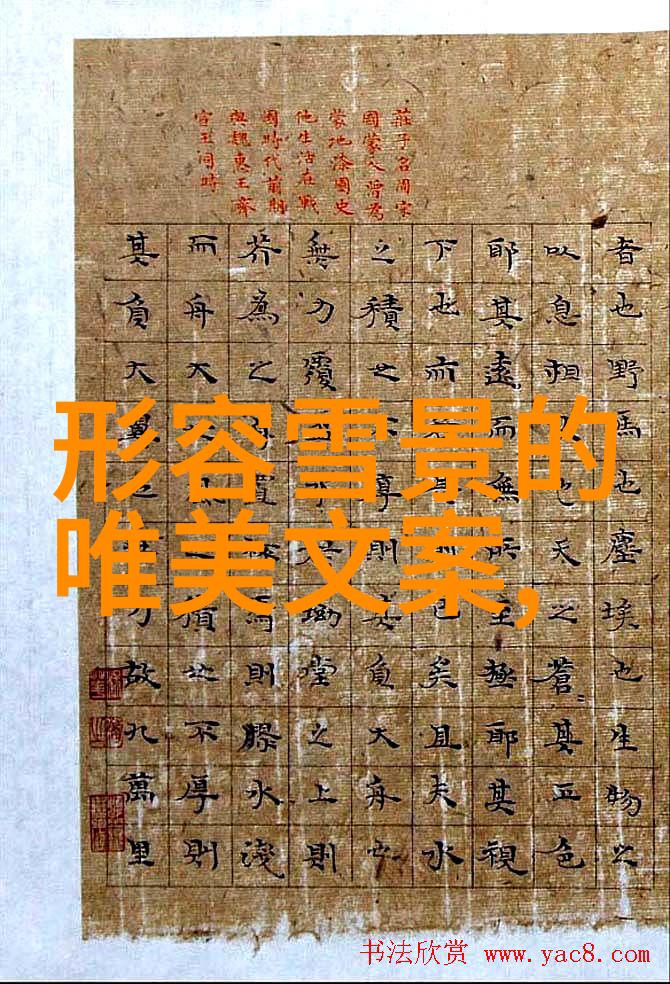 形容雪景的
唯美文案,
莊子名周宋
國蒙人曾為
蒙地漆園史
他生活在戰
國時代前期
與魏惠王齊
宣王同時
者也野馬也塵埃也生物之
以息相吹也天之蒼〃其正色
耶其遠而無所至極耶其視
下也而若則已矣且夫水
之積也不厚則其負大舟也
無力覆水坳堂之上則
芥為之舟置杯焉則膠水淺
而舟大也風積也不厚則
其負大翼也力故九萬里
书法欣赏 www.yac8.com